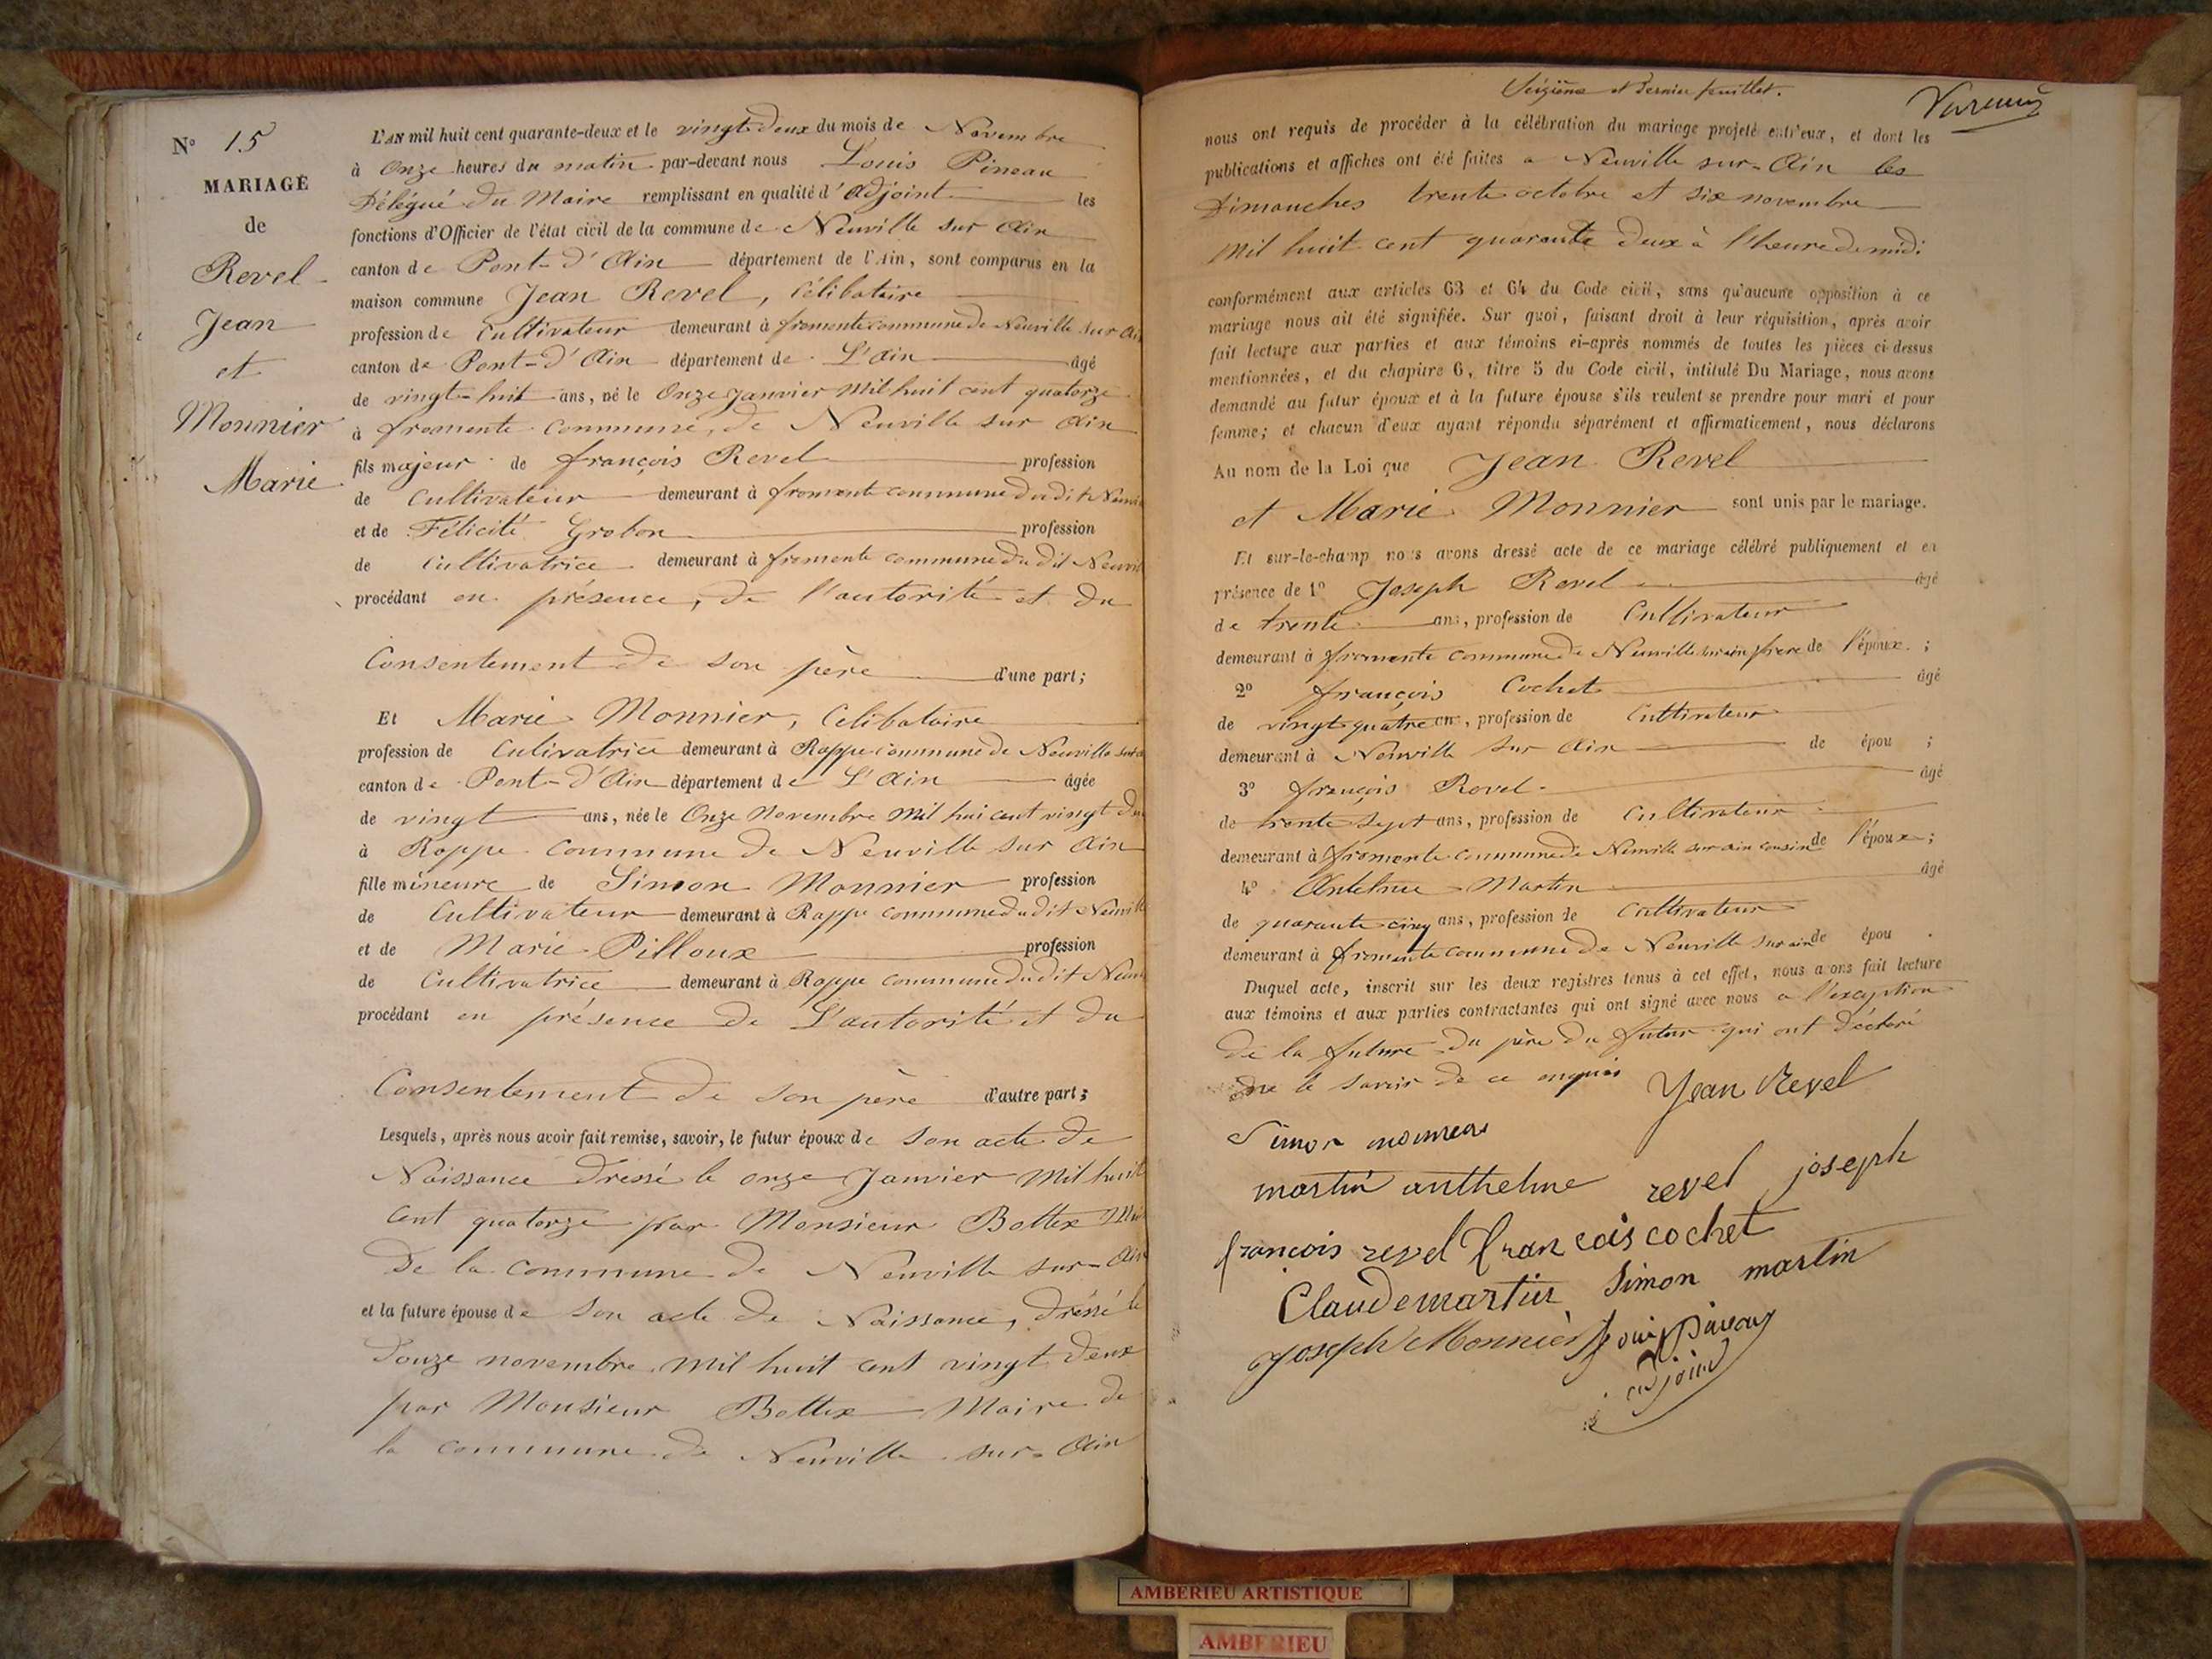 N° 15
MARIAGE
de
Revel
Jean
et
Monnier
Marie
L'AN mil huit cent quarante-deux et le vingt deux du mois de Novembre
à Onze heures du matin par-devant nous Louis Pineau
Délégué du Maire remplissant en qualité d'Adjoint les
fonctions d'Officier de l'état civil de la commune de Neuville sur Ain
canton de Pont-d'Ain département de l'Ain, sont comparus en la
maison commune Jean Revel, Célibataire
profession de Cultivateur demeurant à fromente commune de Neuville sur Ain
canton de Pont-d'Ain département de L'ain âgé
de vingt-huit ans, né le Onze Janvier Mil huit cent quatorze
à fromente commune, de Neuville sur Ain
fils majeur de françois Revel profession
de Cultivateur demeurant à fromente commune du dit Neuvil
et de Félicité Grobon profession
de Cultivatrice demeurant à fromente commune du dit Neuvil
procédant en présence, de l'autorité et du
Consentement de son père d'une part;
Et Marie Monnier, Célibataire
profession de Cultivatrice demeurant à Rappe commune de Neuville sur a
canton de Pont-d'Ain département de L'Ain âgée
de vingt ans, née le Onze Novembre Mil hui cent vingt deu
à Rappe commune de Neuville sur Ain
fille mineure de Simon Monnier profession
de Cultivateur demeurant à Rappe commune du dit Neuvill
et de Marie Pilloux profession
de Cultivatrice demeurant à Rappe commune du dit Neuv
procédant en présence de L'autorité et du
Consentement de son père d'autre part;
Lesquels, après nous avoir fait remise, savoir, le futur époux de Son acte de
Naissance Dressé le onze Janvier Mil huit
Cent quatorze par Monsieur Bottex
De la commune de Neuville sur-Ain
et la future épouse de Son acte de Naissance, dressé le
Douze novembre Mil huit cent vingt deux
par Monsieur Bottex Maire de
la commune de Neuville sur-Ain
Seizième et Dernier feuillet.
nous ont requis de procéder à la célébration du mariage projeté entr'eux, et dont les
publications et affiches ont été faites a Neuville sur-Ain les
Dimanches trente octobre et six novembre
Mil huit cent quarante deux à l'heure de midi.
conformément aux articles 63 et 64 du Code civil, sans qu'aucune opposition à ce
mariage nous ait été signifiée. Sur quoi, faisant droit à leur réquisition, après avoir
fait lecture aux parties et aux témoins ci-après nommés de toutes les pièces ci-dessus
mentionnées, et du chapitre 6, titre 5 du Code civil, intitulé Du Mariage, nous avons
demandé au futur époux et à la future épouse s'ils veulent se prendre pour mari et pour
femme; et chacun d'eux ayant répondu séparément et affirmativement, nous déclarons
Au nom de la Loi que Jean Revel
et Marie Monnier sont unis par le mariage.
Et sur-le-champ nous avons dressé acte de ce mariage célébré publiquement et en
présence de 1° Joseph Revel âgé
de trente ans, profession de Cultivateur
demeurant à fromente commune de Neuville sur ain frere de l'époux ;
2° françois Cochet âgé
de vingt quatre ans, profession de Cultivateur
demeurant à Neuville sur Ain de épou ;
3° françois Revel âgé
de trente sept ans, profession de Cultivateur
demeurant à fromente commune de Neuville sur ain cousin de l'époux ;
4° Antelme Martin âgé
de quarante cinq ans, profession de Cultivateur
demeurant à fromente commune de Neuville sur ain de épou .
Duquel acte, inscrit sur les deux registres tenus à cet effet, nous avons fait lecture
aux témoins et aux parties contractantes qui ont signé avec nous a l'exception
De la future du père du futur qui ont déclaré
ne le savoir de ce enquis Jean Revel
Simon
martin anthelme revel joseph
françois revel francois cochet
Claude martin Simon martin
Joseph Monnier Louis Pineau
adjoint
AMBERIEU ARTISTIQUE
AMBERIEU